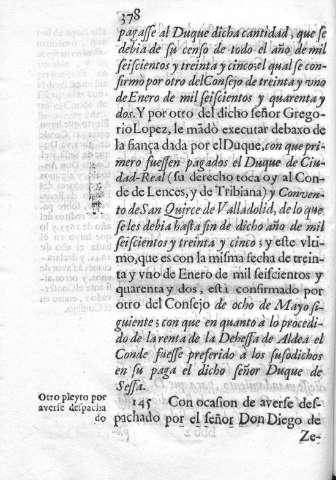 378
pagasse al Duque dicha cantidad, que se
debia de su censo de todo el año de mil
seiscientos y treinta y cinco; el qual se con-
firmo por otro del Consejo de treinta y vno
de Enero de mil seiscientos y quarenta y
dos. Y por otro del dicho señor Grego-
rio Lopez, le mãdò executar debaxo de
la fiança dada por el Duque, con que pri-
mero fuessen pagados el Duque de Ciu-
dad-Real (su derecho toca oy al Con-
de de Lences, y de Tribiana) y Conven-
to de San Quirce de Valladolid, de lo que
se les debia hasta fin de dicho año de mil
seiscientos y treinta y cinco; y este vlti-
mo, que es con la misma fecha de trein-
ta y vno de Enero de mil seiscientos y
quarenta y dos, està confirmado por
otro del Consejo de ocho de Mayo si-
guiente; con que en quanto à lo procedi-
do de la renta de la Dehessa de Aldea el
Conde fuesse preferido à los susodichos
en su paga el dicho señor Duque de
Sessa.
Otro pleyto por
averse despacha
do
145 Con ocasion de averse des-
pachado por el señor Don Diego de
Ze-